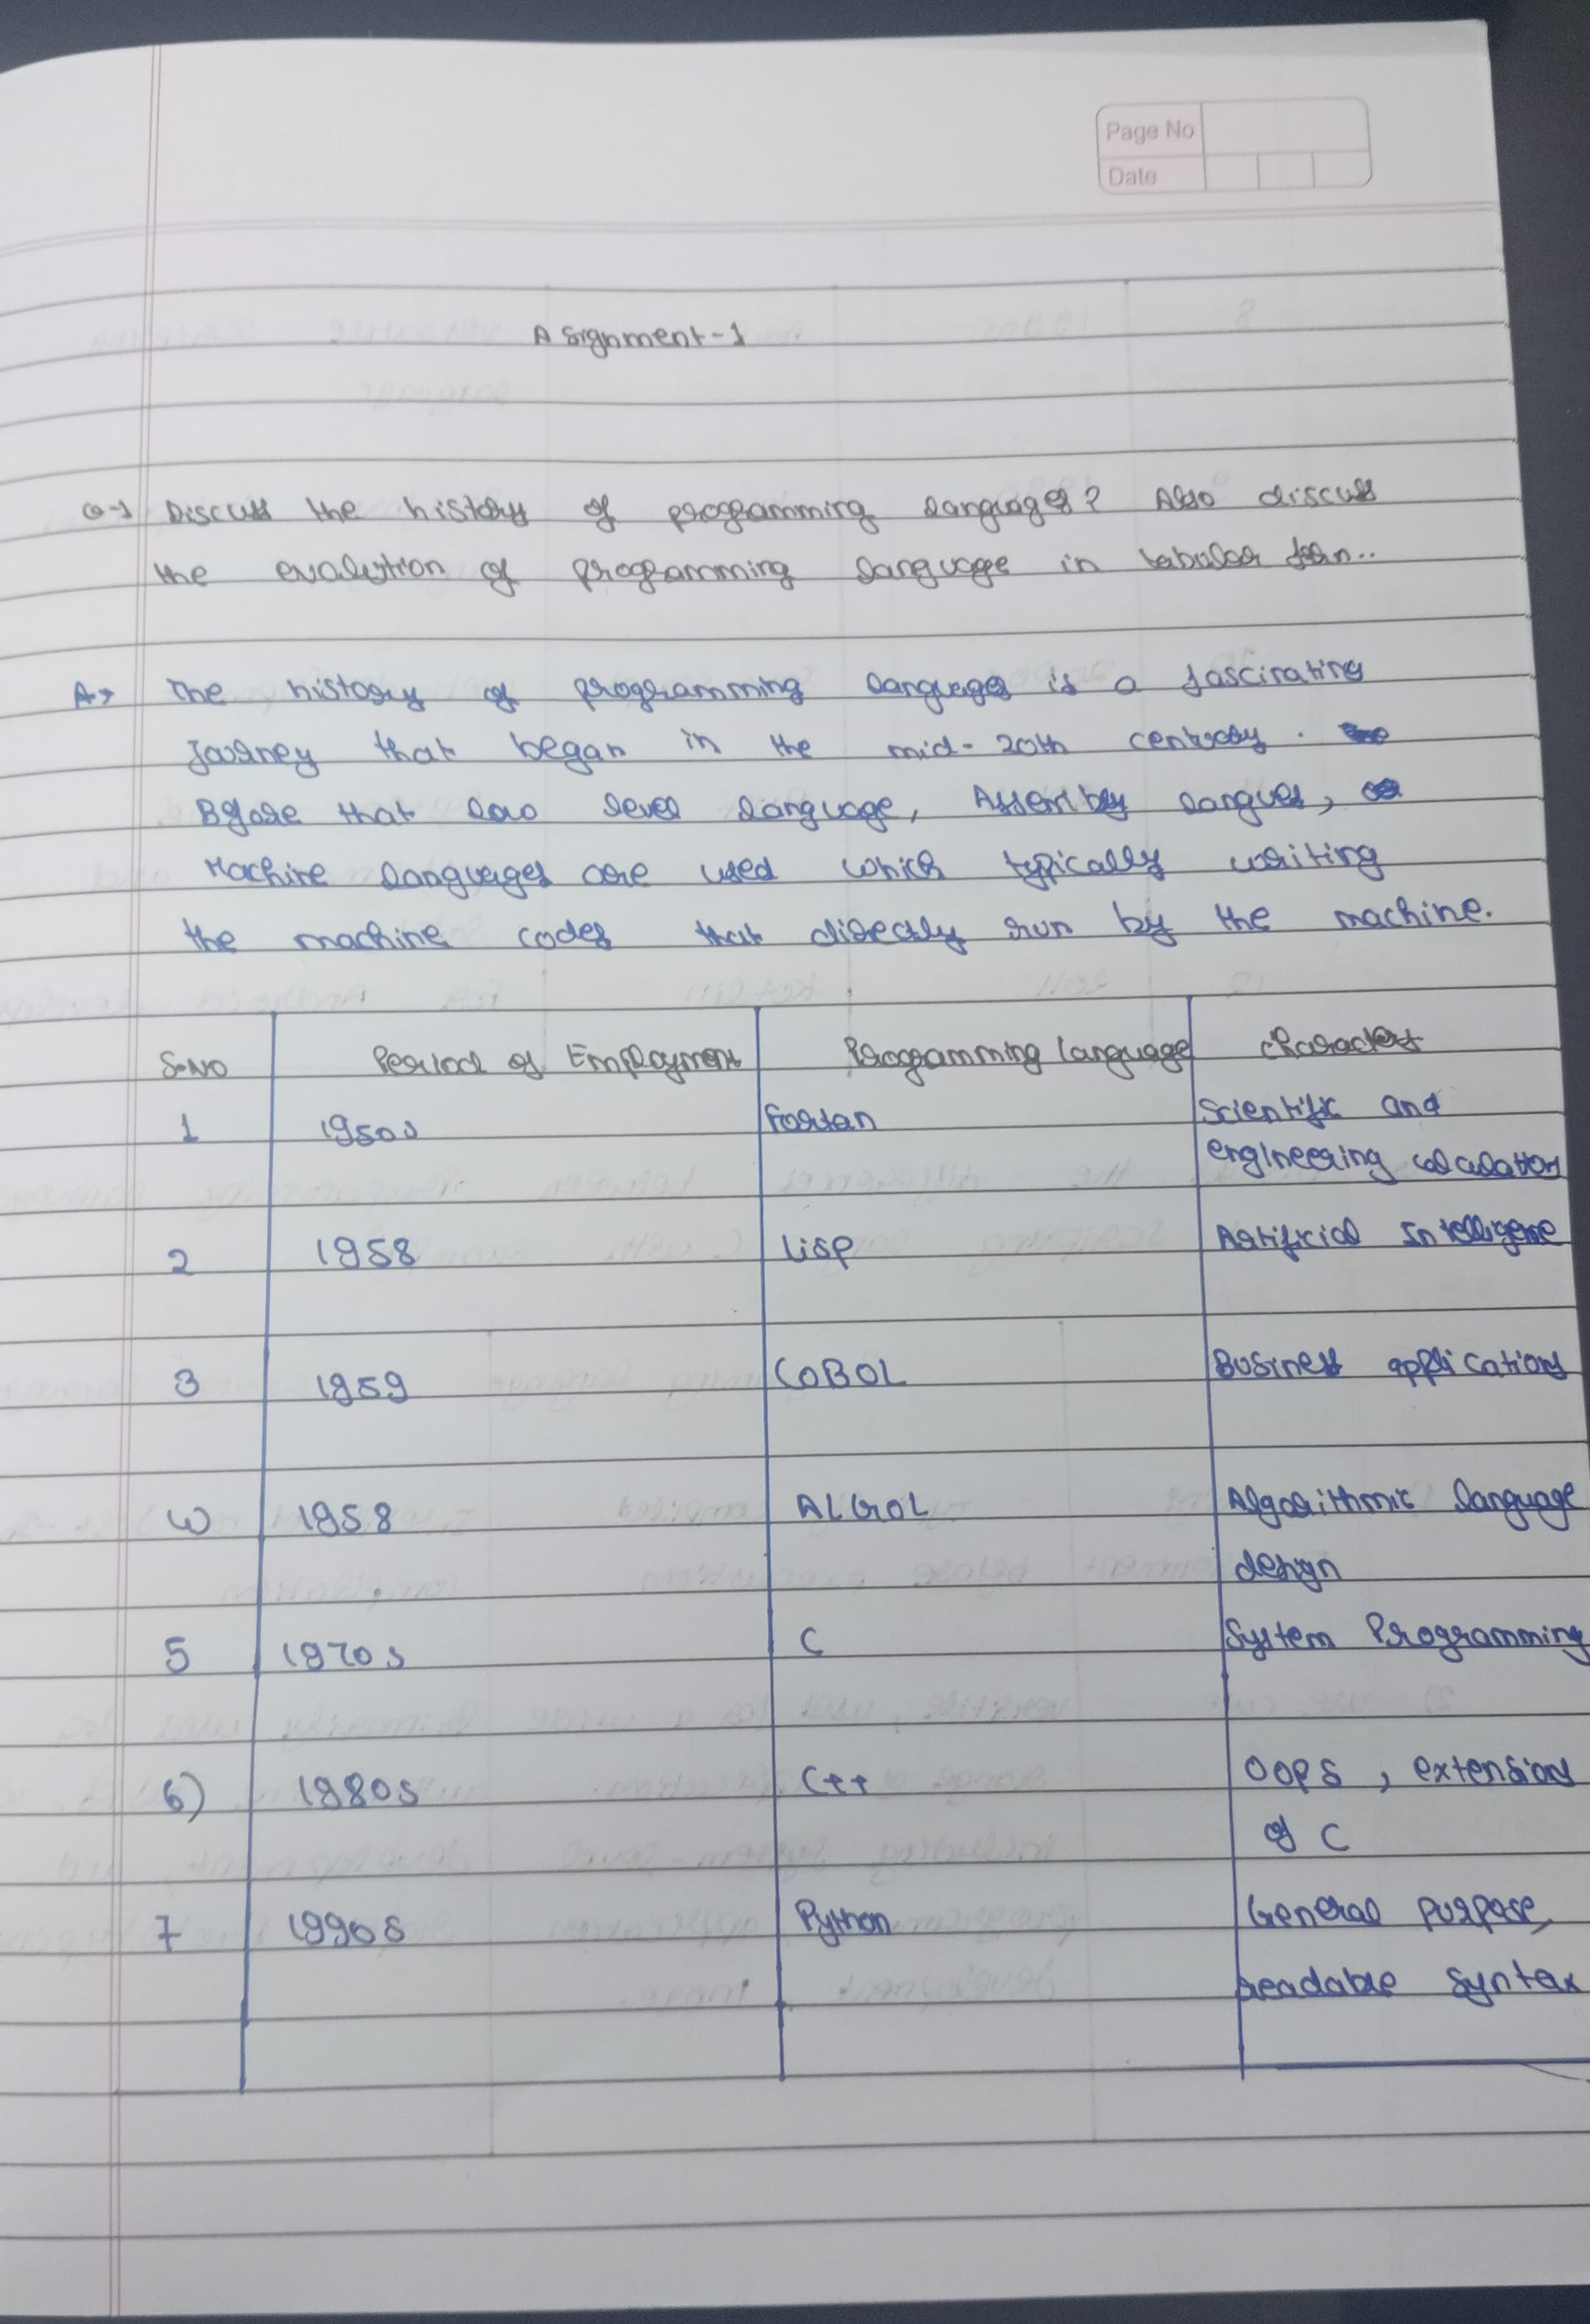 Page No
Date
Asignment-1
Q-1 Discuss the history of programming languages? Also discuss
the evolution of programming language in tabular form..
A→ The history of programming languages is a fascinating
Journey that began in the mid-20th century.
Before that low level language, Assembly langues,
Machine languages are used which typically writing
the machine codes that directly run by the machine.
S.NO Period of Employment Programming language characters
1 1950s Fortan Scientific and
engineering calculation
2 1958 Lisp Artificial Intelligene
3 1959 COBOL Business applications
4 1958 ALGOL Algorithmic language
design
5 1970s C System Programming
6) 1980s C++ OOPS, extensions
of C
7 1990s Python General purpose,
readable syntax